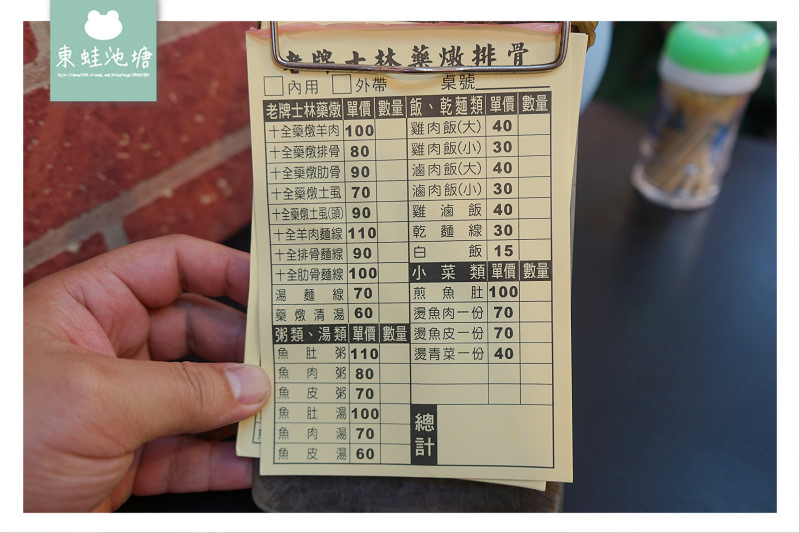 東蛙池塘
老牌士林藥燉排骨
內用 外帶 桌號
老牌士林藥燉 單價 數量
十全藥燉羊肉 100
十全藥燉排骨 80
十全藥燉肋骨 90
十全藥燉土虱 70
十全藥燉土虱(頭) 90
十全羊肉麵線 110
十全排骨麵線 90
十全肋骨麵線 100
湯麵線 70
藥燉清湯 60
粥類、湯類 單價 數量
魚肚粥 110
魚肉粥 80
魚皮粥 70
魚肚湯 100
魚肉湯 70
魚皮湯 60
飯、乾麵類 單價 數量
雞肉飯(大) 40
雞肉飯(小) 30
滷肉飯(大) 40
滷肉飯(小) 30
雞滷飯 40
乾麵線 30
白飯 15
小菜類 單價 數量
煎魚肚 100
燙魚肉一份 70
燙魚皮一份 70
燙青菜一份 40
總計